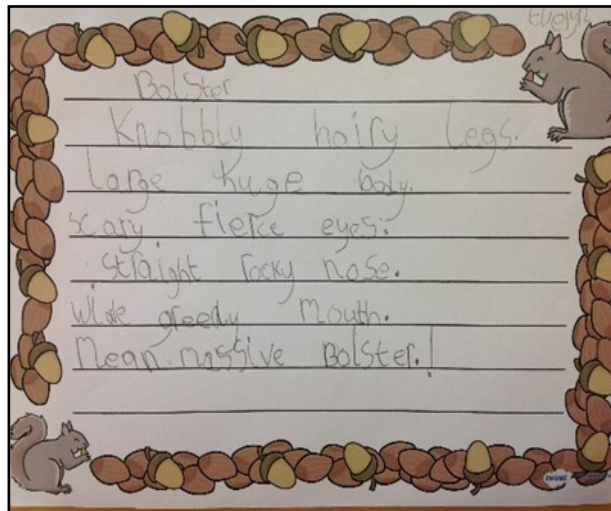 Evelyn
Bolster
Knobbly hairy legs.
Large huge body.
scary fierce eyes.
straight rocky nose.
wide greedy mouth.
Mean massive Bolster.!
twinkl